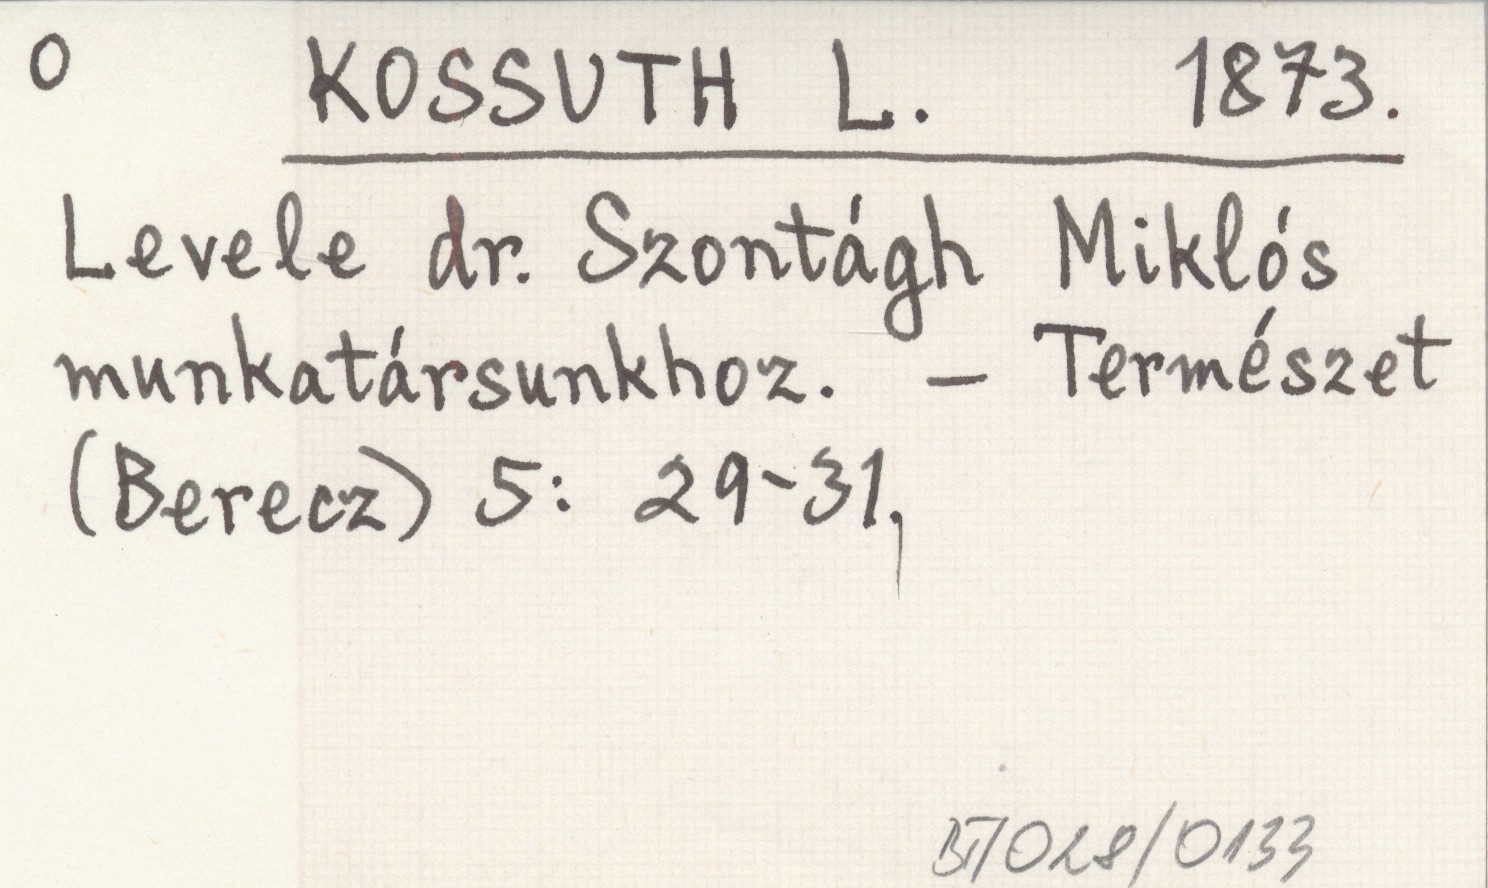 O KOSSUTH L. 1873.
Levele dr. Szontágh Miklós
munkatársunkhoz. – Természet
(Berecz) 5: 29-31.
BT/028/0133